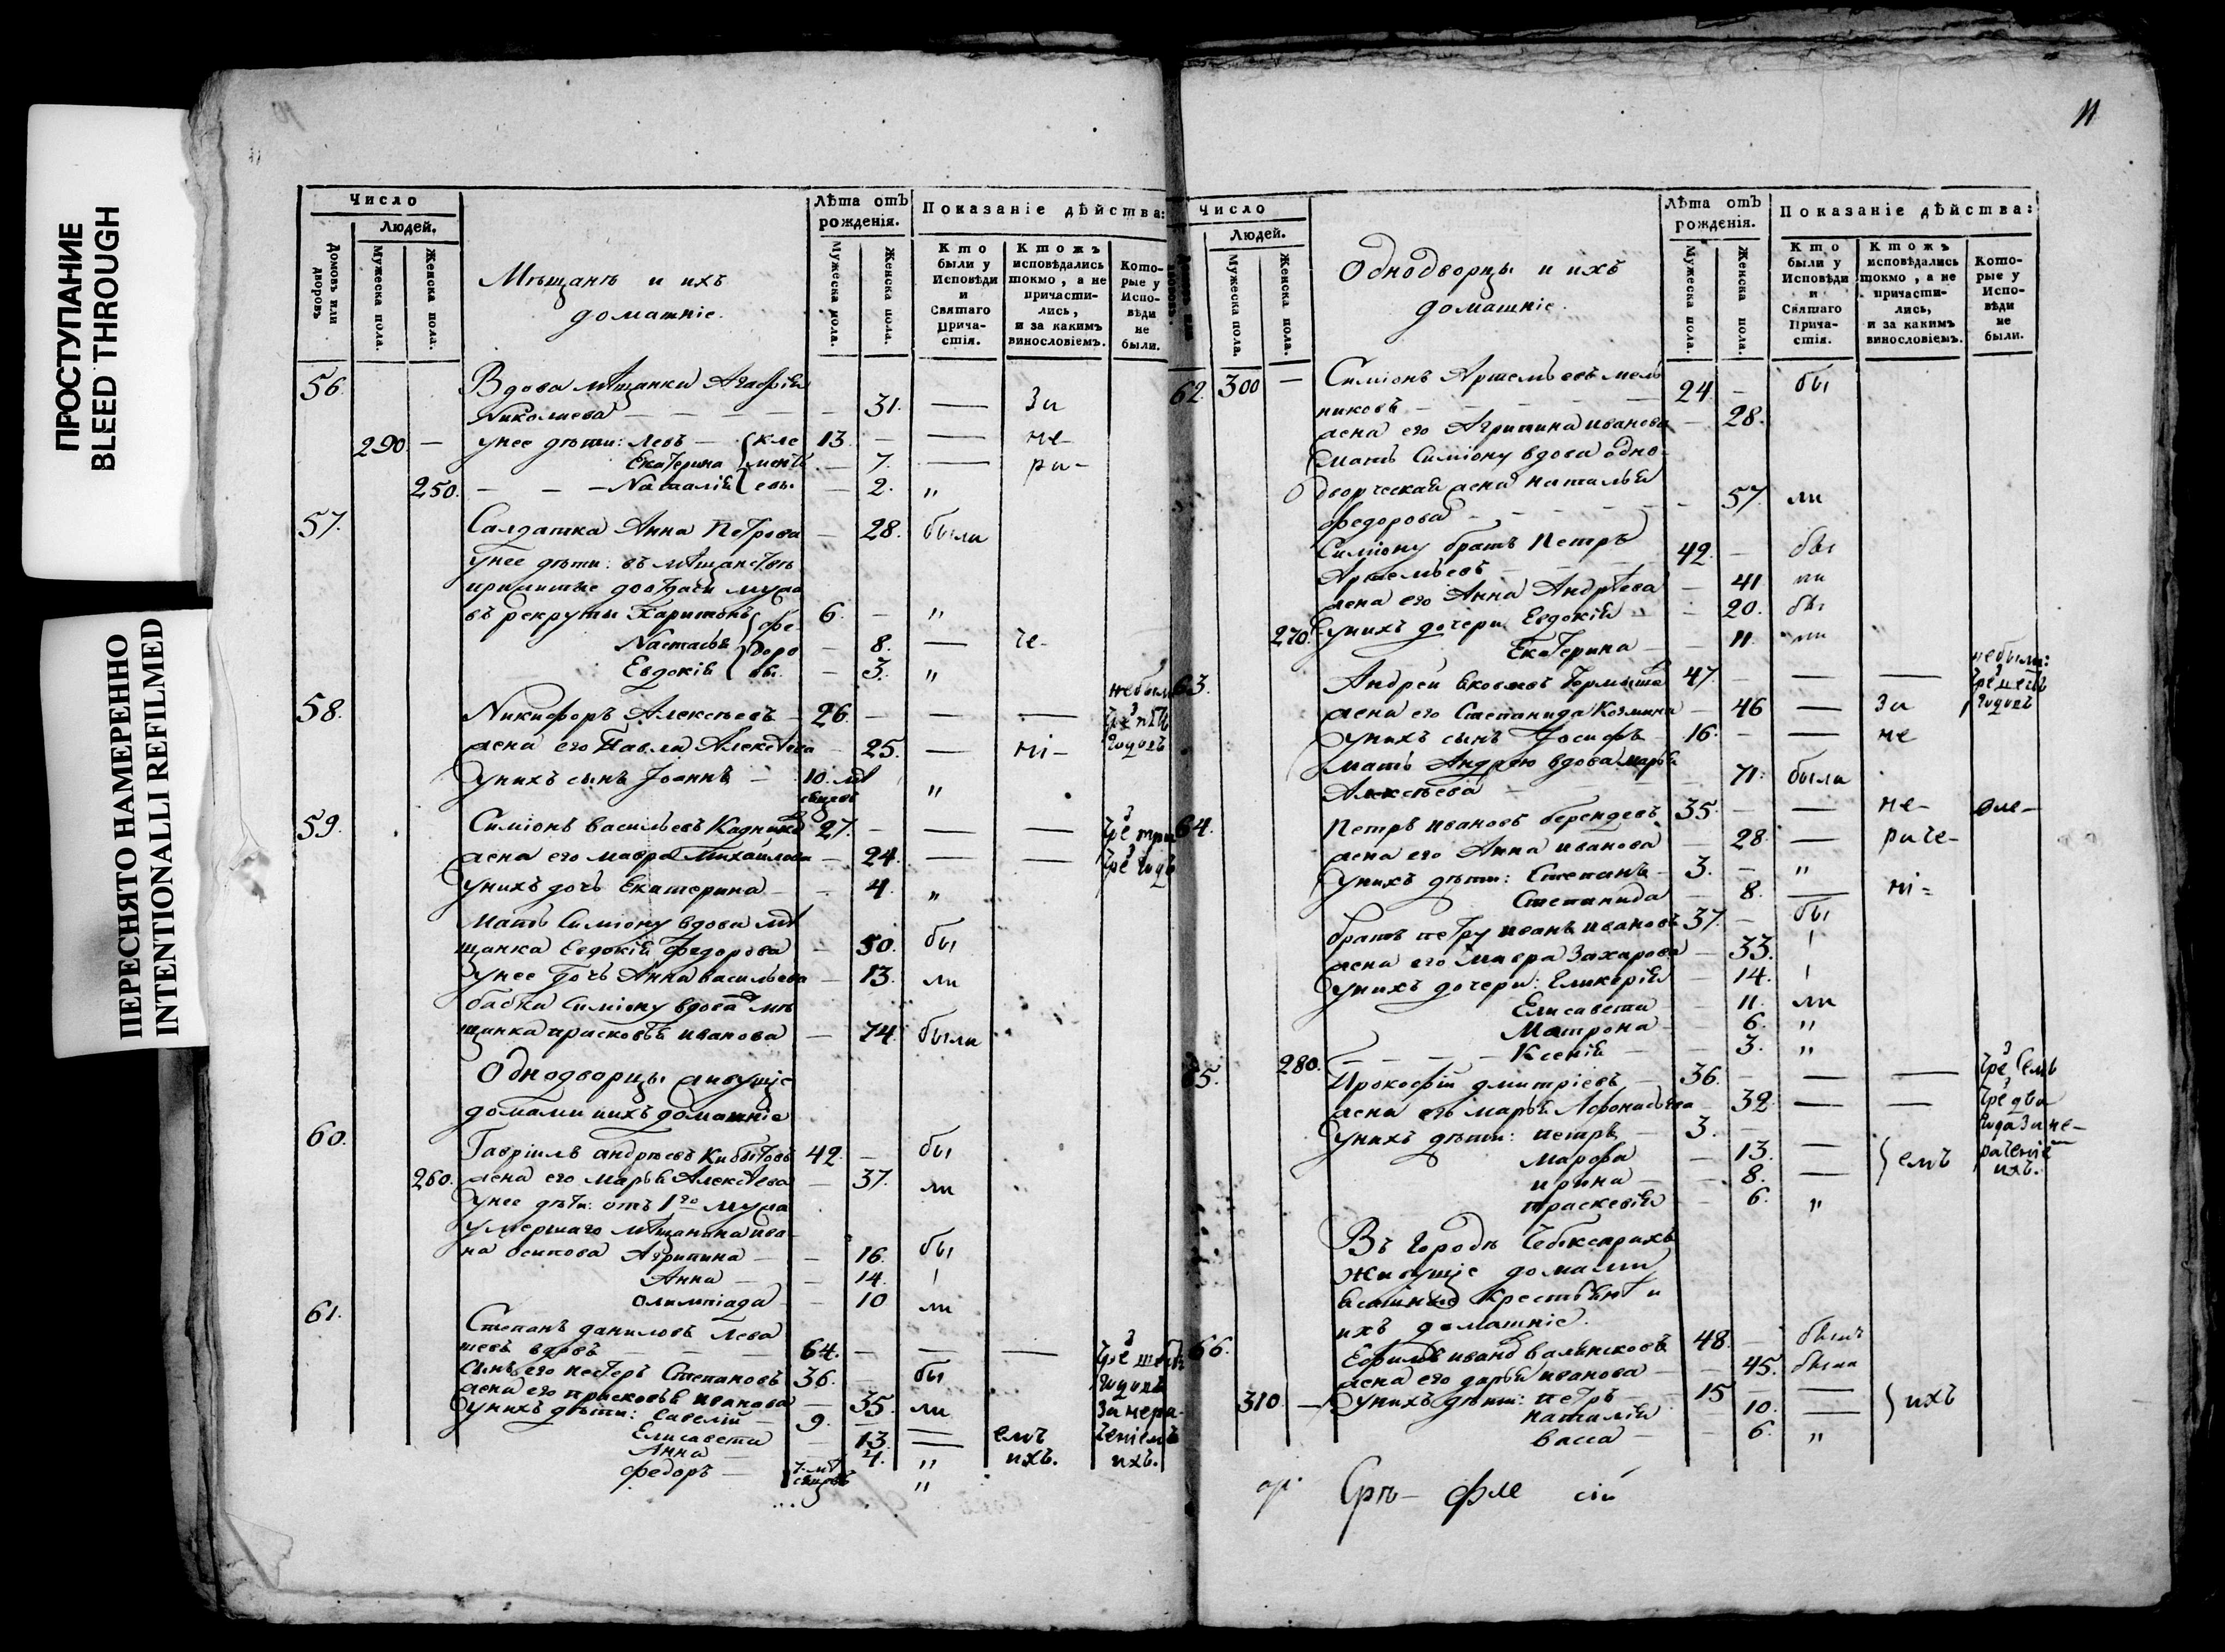 ПРОСТУПАНИЕ
BLEED THROUGH
ПЕРЕСНЯТО НАМЕРЕННО
INTENTIONALLI REFILMED
Число
Людей.
Домовъ или дворовъ
Мужеска пола.
Женска пола.
Мѣщанъ и ихъ
домашніе.
Лѣта отъ рожденія.
Мужеска пола.
Женска пола.
Показаніе дѣйства:
Кто были у Исповѣди и Святаго Причастія.
Ктожъ исповѣдались токмо, а не причастились, и за какимъ винословіемъ.
Которые у Исповѣди не были.
56. Вдова мѣщанка Агафія
Николаева — 31. — За
290. — унее дѣти: Левъ — {кле 13. — — не-
Екатерина {менть — 7. — ра-
250. — — Наталія {евы — 2. "
57. Салдатка Анна Петрова — 28. были
унее дѣти: въ мѣщанствѣ
прижитые доотдачи мужа
въ рекруты Харитонъ {фе 6. — "
Настасья {доро — 8. — че-
Евдокія {вы. — 3. "
58. Никифоръ Алексѣевъ — 26. — — — небыли
жена его Павла Алексѣева — 25. — ні- годовъ
унихъ сынъ Іоаннъ — 10. мѣ
сяцовъ "
59. Симіонъ васильевъ 27. — — — чрез три
жена его мавра Михайлова — 24. — — чрез годъ
унихъ дочь Екатерина — 4. "
мать Симіону вдова мѣ
щанка Евдокія Федорова — 50. бы
унее дочь Анна васильева — 13. ли
бабка Симіону вдова мѣ
щанка прасковья иванова — 74. были
Однодворцы живущіе
домами иихъ домашніе
60. Гавріилъ андреевъ 42. — бы
260. жена его марья Алексѣева — 37. ли
унее дѣти: отъ 1го мужа
умершаго мѣщанина ива
на осипова Агрипина — — 16. бы
Анна — — 14. !
олимпіада — 10 ли
61. Степанъ даниловъ Лева
шевъ вдовъ — — 64. — — — чрез
сынъ его Нестеръ Степановъ 36. — бы годовъ
жена его прасковья иванова — 35. ли За нера-
унихъ дѣти: Савелій — 9. — — емъ ченіемъ
Елисавета — 13. — ихъ. ихъ.
Анна — 4. "
федоръ — 7. мѣ
сяцовъ "
11
Число
Людей.
Мужеска пола.
Женска пола.
Однодворцы и ихъ
домашніе.
Лѣта отъ рожденія.
Мужеска пола.
Женска пола.
Показаніе дѣйства:
Кто были у Исповѣди и Святаго Причастія.
Ктожъ исповѣдались токмо, а не причастились, и за какимъ винословіемъ.
Которые у Исповѣди не были.
62. 300 — Симіонъ Артемьевъ мель
никовъ — 24. — бы
жена его Агрипина иванова — 28.
мать Симіону вдова одно-
дворческая жена наталья
федорова — 57. ли
Симіону братъ Петръ
Артемьевъ — 42. — бы
жена его Анна Андрѣева — 41. ли
270. унихъ дочери Евдокія — 20. бы
Екатерина — 11. ли
63. Андрей 47. — — — небыли:
жена его Степанида Козмина — 46 — За годовъ
унихъ сынъ Іосифъ — 16. — — не
мать Андрею вдова марья
Алексѣева — 71. были
64. Петръ ивановъ берендеевъ 35. — — не- оле-
жена его Анна иванова — 28. — раче-
унихъ дѣти: Степанъ — 3. — "
Степанида — 8. — ні=
братъ петру иванъ ивановъ 37. — бы
жена его мавра Захарова — 33. !
унихъ дочери: Гликерія — 14. !
Елисавета — 11. ли
Матрона — 6. "
280. — — — Ксенія — 3. "
65. Прокофій дмитріевъ — 36. — — — чрез семь
жена его марья Афонасьева — 32. — — чрез два
унихъ дѣти: петръ — 3. — года За не-
Марфа — 13. — } емъ раченіе
ирина — 8. — ихъ.
праскевія — 6. "
Въ городѣ Чебоксарахъ
живущіе домами
крестьянѣ и
ихъ домашніе.
66. Ефимъ ивановъ 48. — былъ
жена его дарья иванова — 45. была
310. — унихъ дѣти: петръ — 15 — } ихъ
наталія — 10. —
васса — 6. "